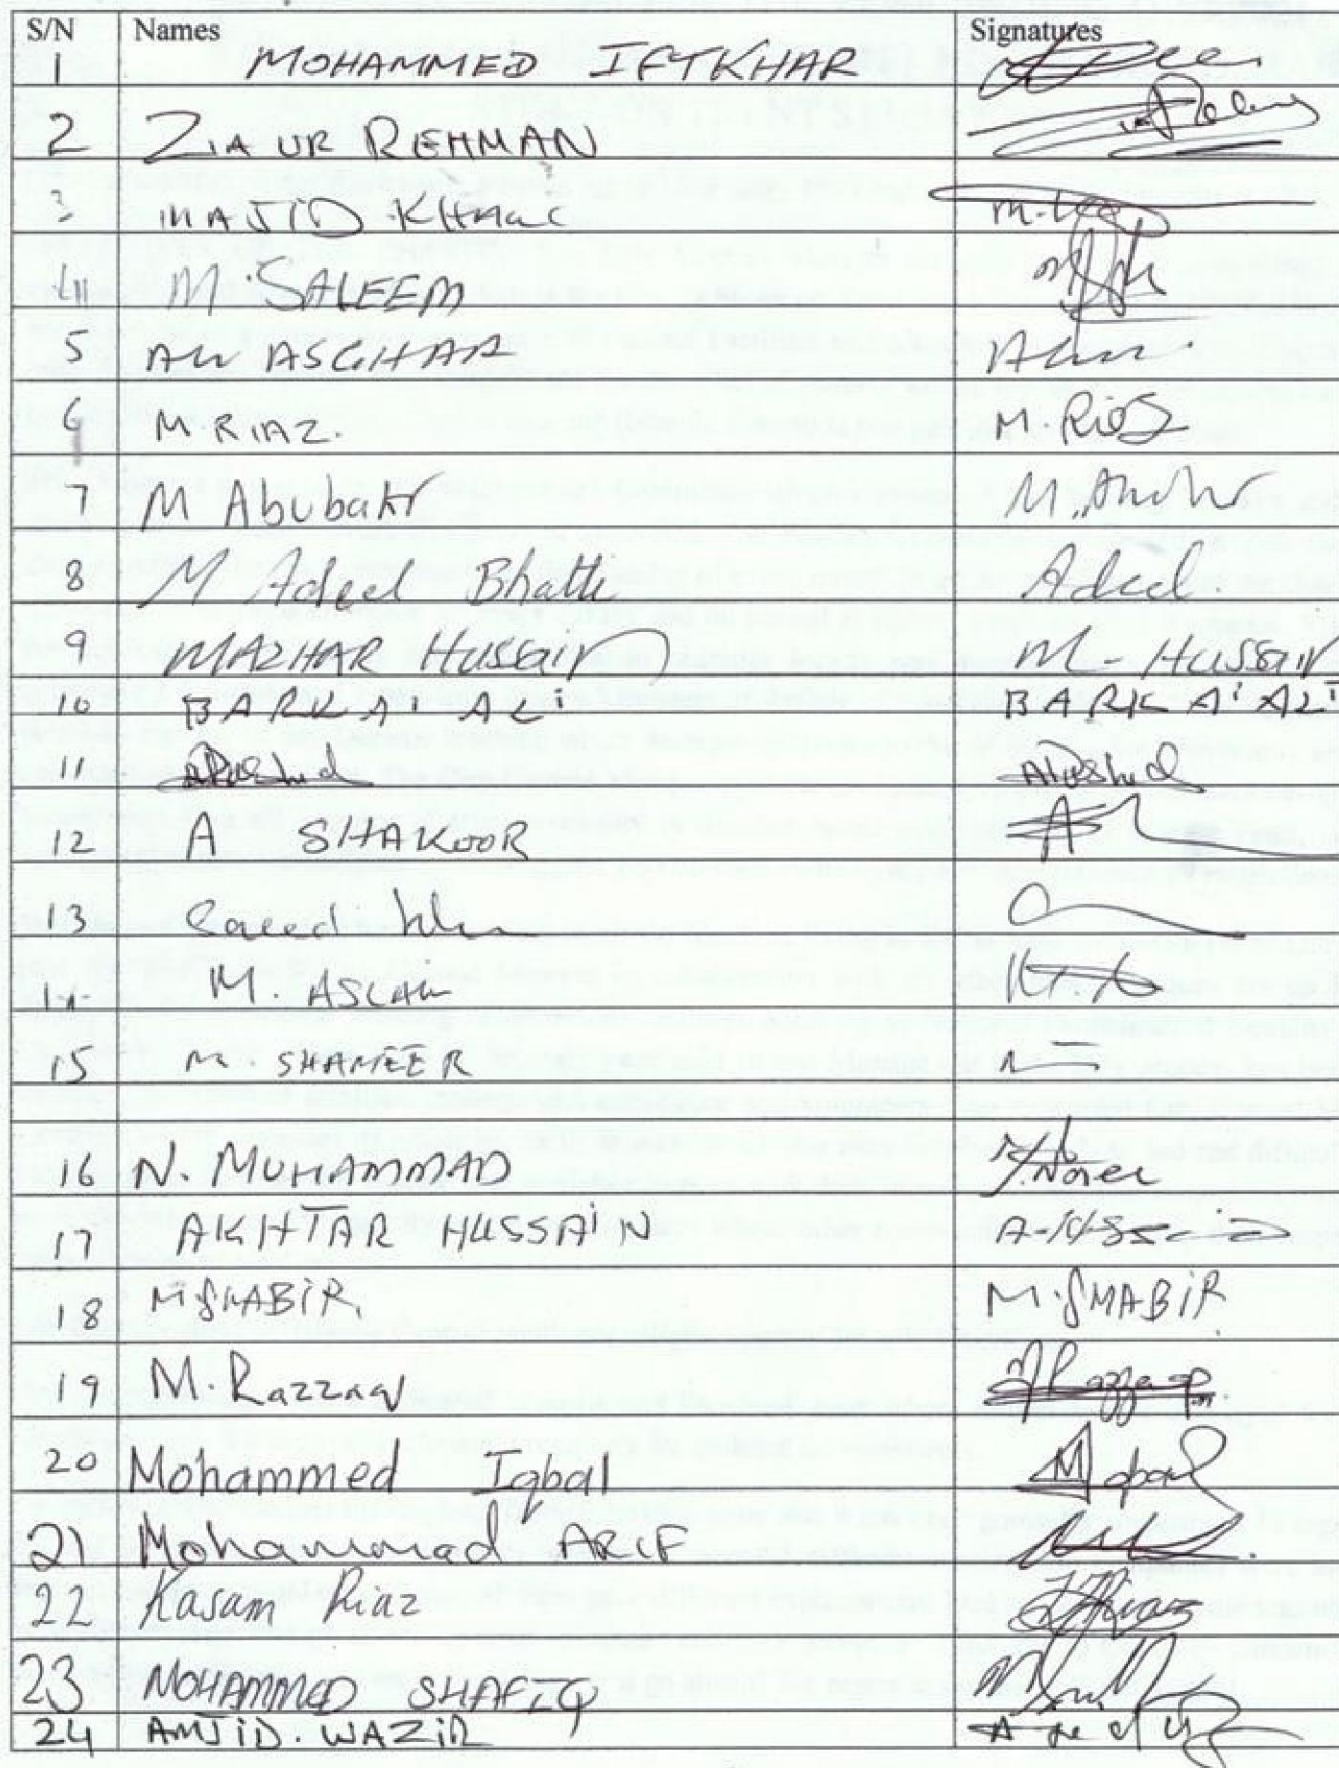 S/N Names Signatures
1 MOHAMMED IFTKHAR
2 ZIA UR REHMAN
3 MAJID
4 M. SALEEM
5 ALI ASGHAR
6 M RIAZ. M. RiaZ
7 M Abubakr
8 M Adeel Bhatti Adeel.
9 MAZHAR HUSSAIN M - HUSSAIN
10 BARKAi ALi BARKAi ALi
11 ARashid ARashid
12 A SHAKOOR
13 Saeed
14 M. ASLAM
15 M. SHAMEER
16 N. MUHAMMAD
17 AKHTAR HUSSAiN
18 M SHABiR. M. SHABiR.
19 M. Razzaq M Razzaq
20 Mohammed Iqbal M Iqbal
21 Mohammad ARIF
22 Kasam Riaz
23 MOHAMMED SHAFIQ
24 AMJiD. WAZiR